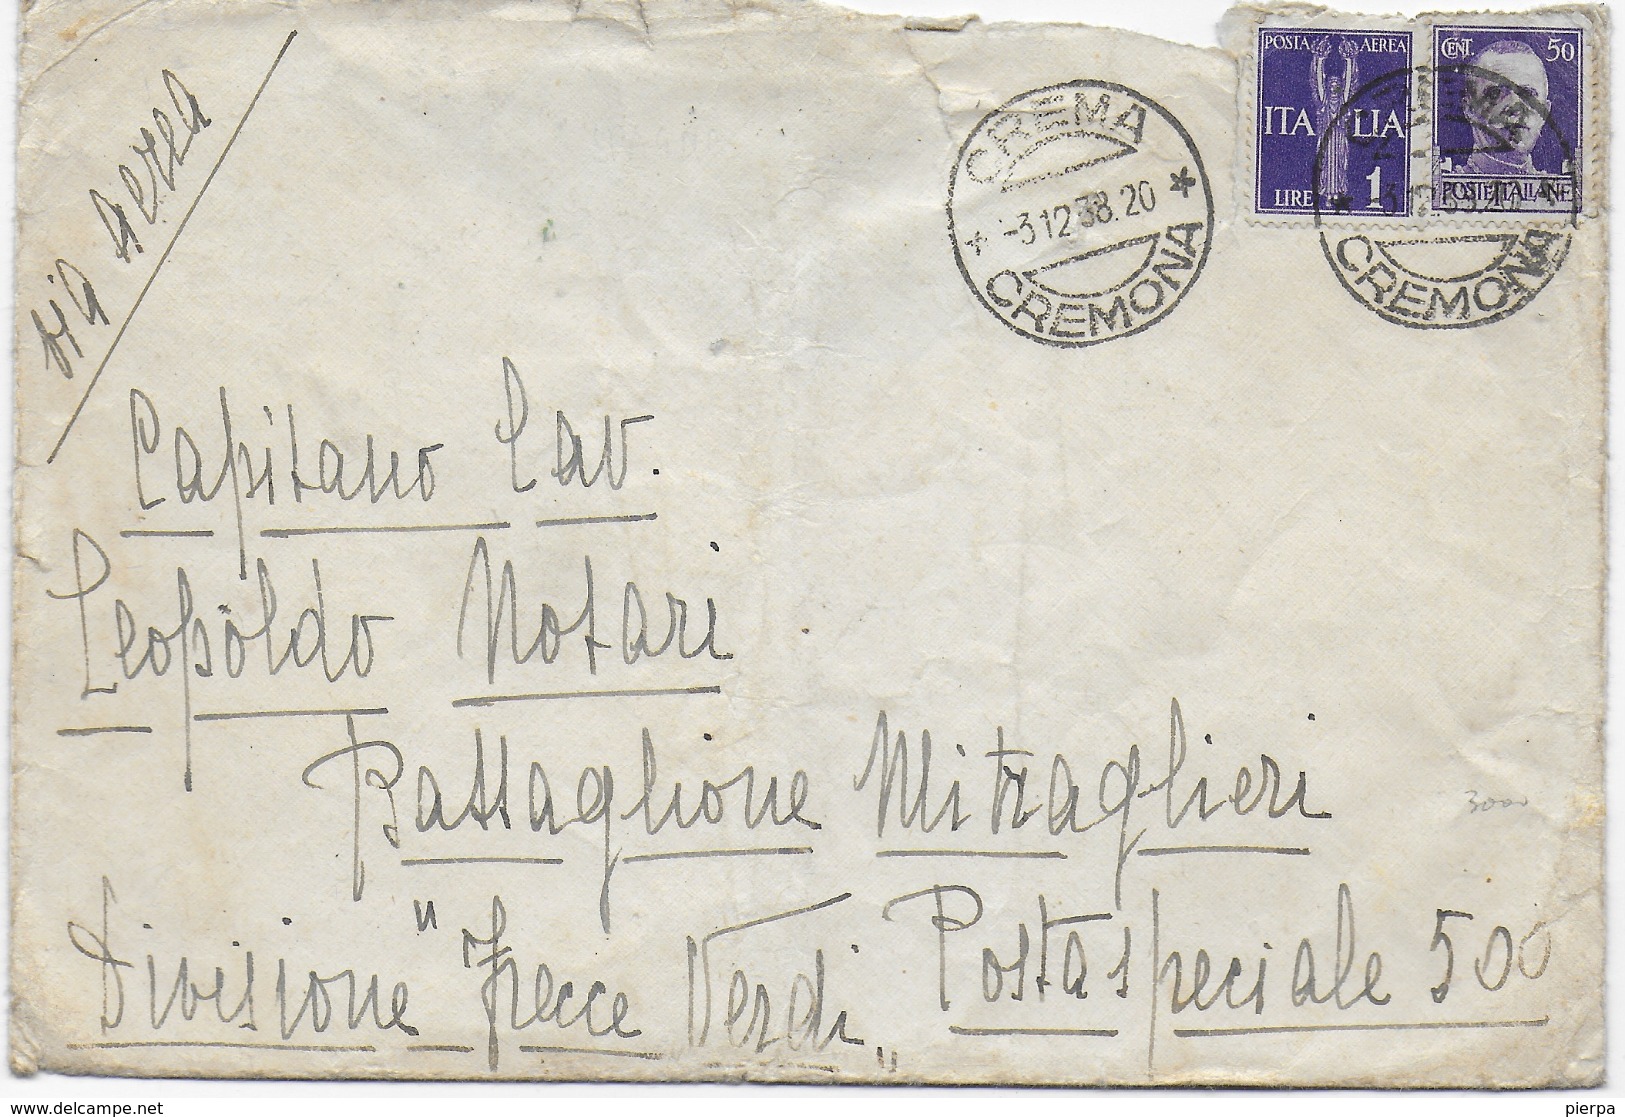 via Aerea
POSTA AEREA
ITALIA
LIRE 1
CENT. 50
POSTE ITALIANE
CREMA
-3.12.38.20
CREMONA
CREMA
3.12.38.20
CREMONA
Capitano Cav.
Leopoldo Notari
Battaglione Mitraglieri
3000
Divisione "Frecce Verdi" Posta speciale 500
www.delcampe.net
pierpa